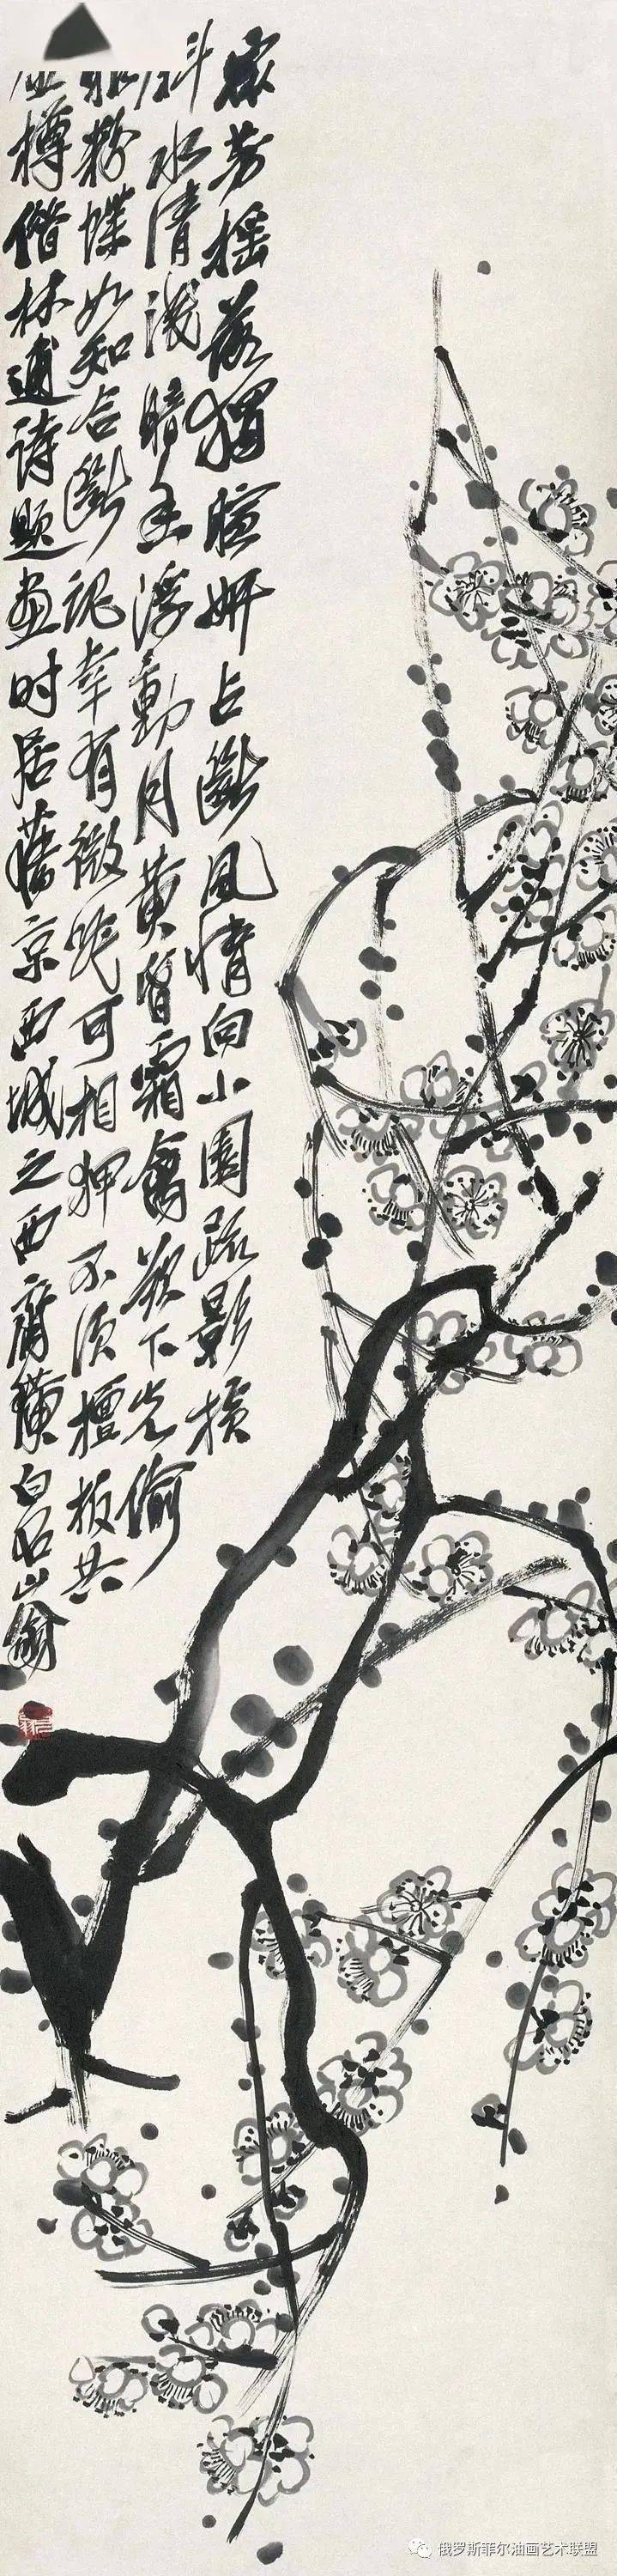 衆芳摇落獨暄妍占斷風情向小園疏影横
斜水清淺暗香浮動月黄昏霜禽欲下先偷
眼粉蝶如知合斷魂幸有微吟可相狎不須檀板共
樽借林逋詩題畫时居舊京西城之西齊璜白石山翁
俄罗斯菲尔油画艺术联盟